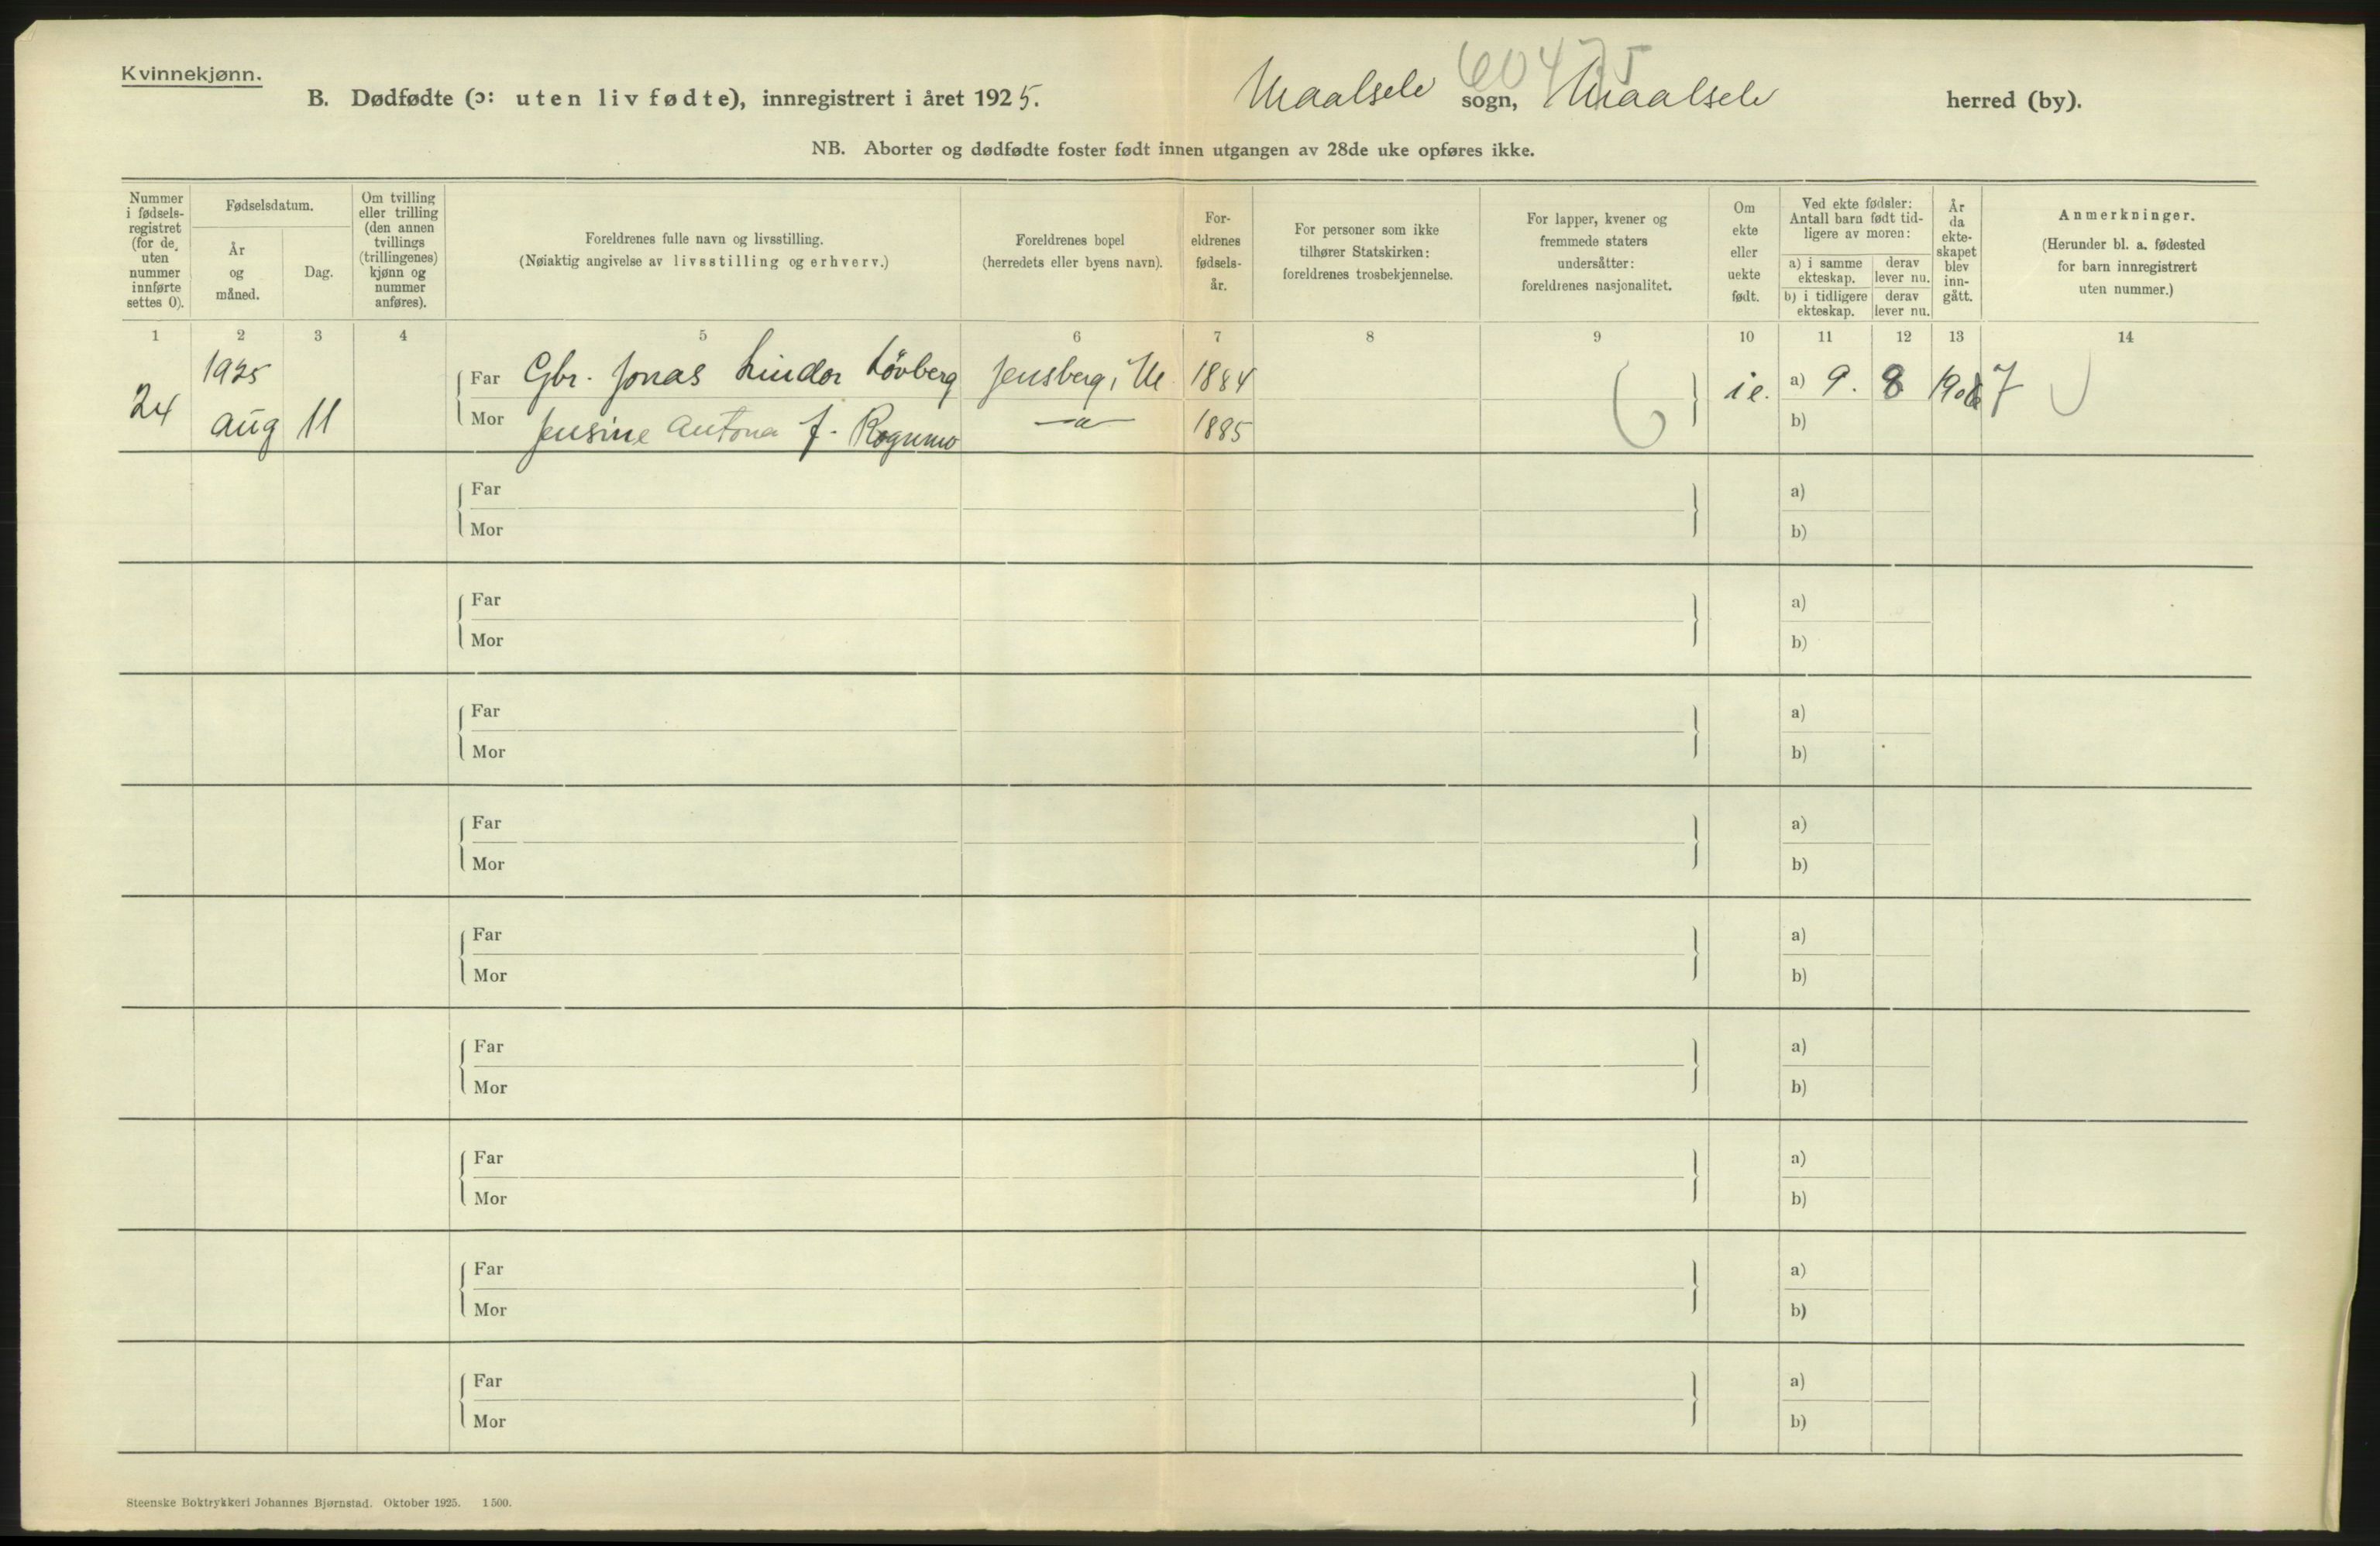 Kvinnekjønn.
60475
B. Dødfødte (ɔ: uten liv fødte), innregistrert i året 1925. Maalselv sogn, Maalselv herred (by).
NB. Aborter og dødfødte foster født innen utgangen av 28de uke opføres ikke.
Nummer
i fødsels-
registret
(for de
uten
nummer
innførte
settes 0).
Fødselsdatum.
År
og
måned.
Dag.
Om tvilling
eller trilling
(den annen
tvillings
(trillingenes)
kjønn og
nummer
anføres).
Foreldrenes fulle navn og livsstilling.
(Nøiaktig angivelse av livsstilling og erhverv.)
Foreldrenes bopel
(herredets eller byens navn).
For-
eldrenes
fødsels-
år.
For personer som ikke
tilhører Statskirken:
foreldrenes trosbekjennelse.
For lapper, kvener og
fremmede staters
undersåtter:
foreldrenes nasjonalitet.
Om
ekte
eller
uekte
født.
Ved ekte fødsler:
Antall barn født tid-
ligere av moren:
a) i samme
ekteskap.
derav
lever nu.
b) i tidligere
ekteskap.
derav
lever nu.
År
da
ekte-
skapet
blev
inn-
gått.
Anmerkninger.
(Herunder bl. a. fødested
for barn innregistrert
uten nummer.)
1 2 3 4 5 6 7 8 9 10 11 12 13 14
1925
24 aug 11
Far Gbr. Jonas Lindor Løvberg Jensberg, M. 1884 i e. a) 9. 8 1907
Mor Jensine Antona f. Rognmo —"— 1885 b)
Far a)
Mor b)
Far a)
Mor b)
Far a)
Mor b)
Far a)
Mor b)
Far a)
Mor b)
Far a)
Mor b)
Far a)
Mor b)
Far a)
Mor b)
Far a)
Mor b)
Steenske Boktrykkeri Johannes Bjørnstad. Oktober 1925. 1500.